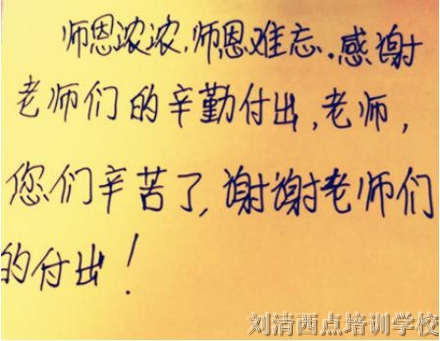 师恩浓浓,师恩难忘.感谢
老师们的辛勤付出,老师,
您们辛苦了,谢谢老师们
的付出!
刘清西点培训学校